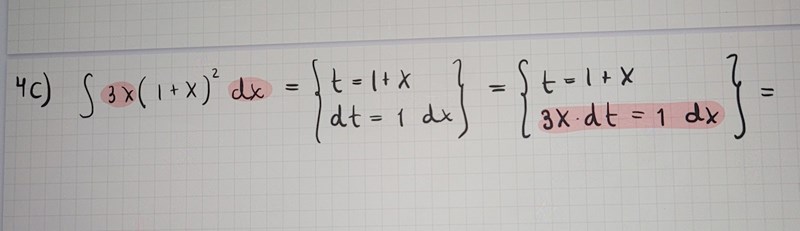 4c) ∫ 3x(1+x)² dx = { t = 1+x = { t = 1+x } =
dt = 1 dx } 3x·dt = 1 dx